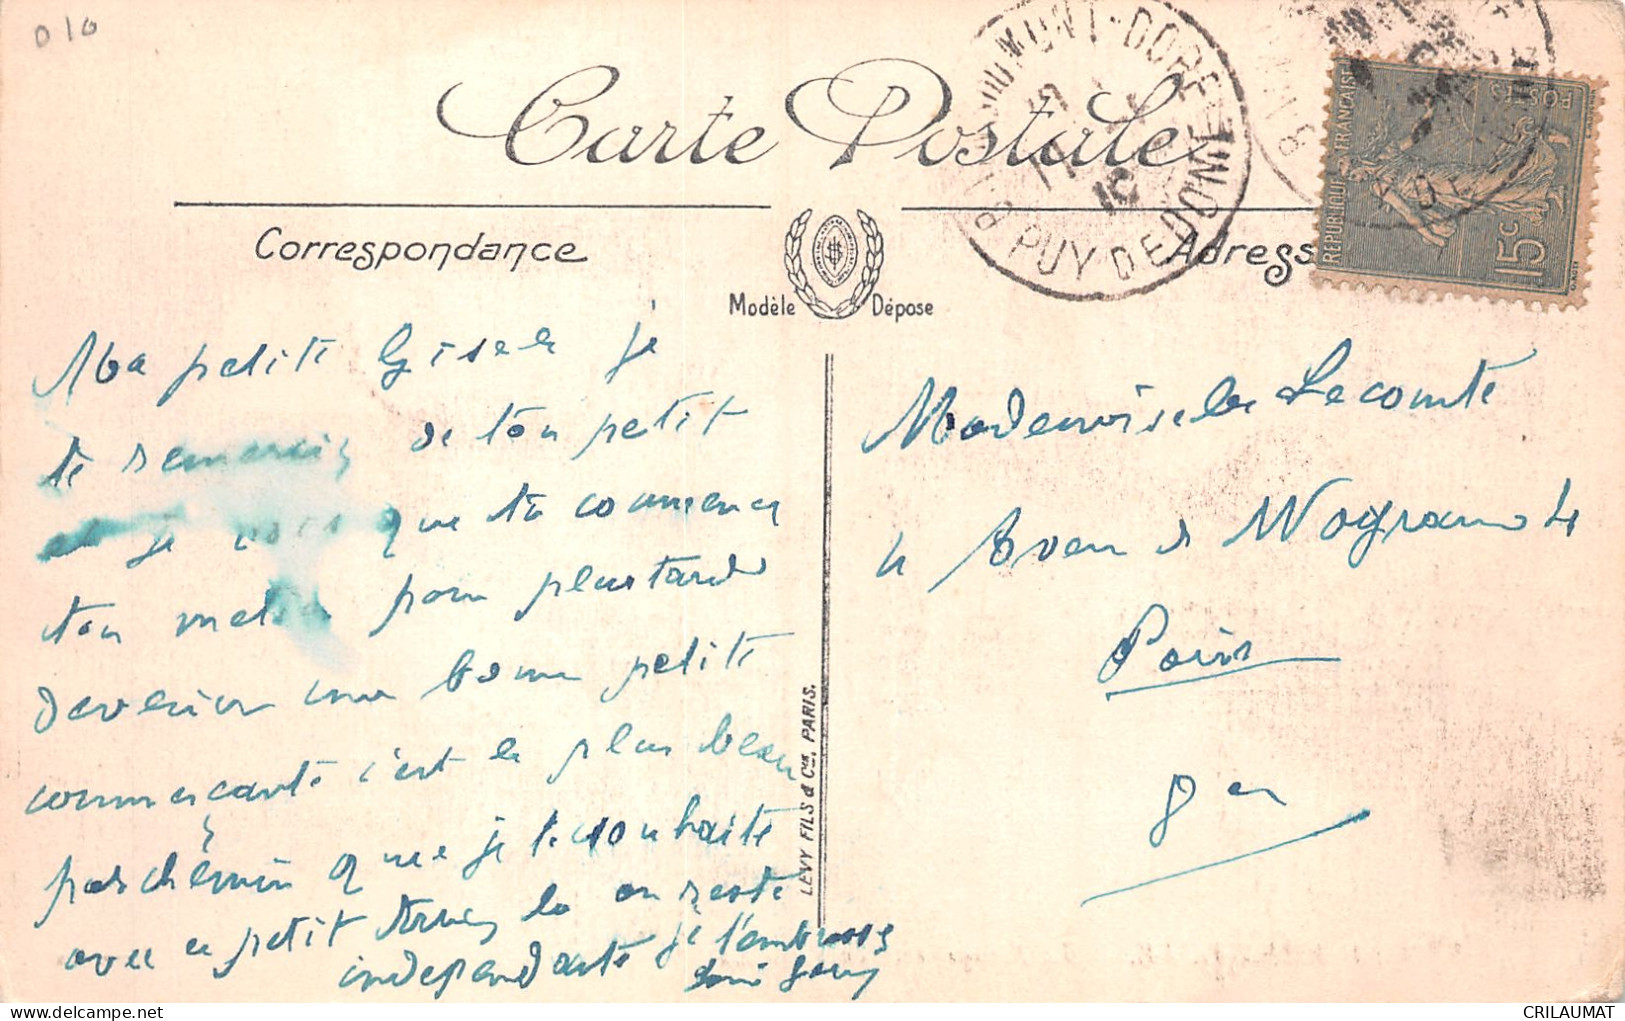 010
Carte Postale
MONT-DORE
PUY DE DOME
RÉPUBLIQUE FRANÇAISE
POSTES
15c
Correspondance
Adress
Modèle Déposé
LÉVY FILS & Cie, PARIS.
Ma petite Gisele je
te remercie de ton petit
et je vois que tu commence
ton metier pour plus tard
devenir une bonne petite
commerçante c'est le plus beau
parchemin que je te souhaite
avec ce petit la on reste
independante je t'embrasse
Mademoiselle Lecomte
4 Aven de Wagram 4
Paris
CRILAUMAT